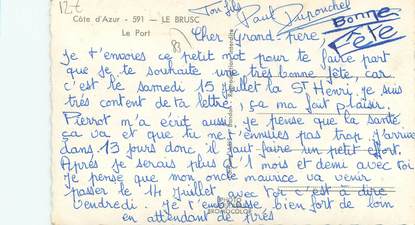 12€
Ton fils Paul Duponchel
Bonne
Fête
Côte d'Azur - 591 - LE BRUSC
Le Port
83
Cher Grand-Père,
je t'envoies ce petit mot pour te faire part
que je te souhaite une très bonne fête, car
c'est le samedi 15 juillet la St Henri. je suis
très content de ta lettre, ça ma fait plaisir.
Pierrot m'a écrit aussi. je pense que la santé
ça va et que tu ne t'ennuies pas trop. j'arrive
dans 13 jours donc il faut faire un petit effort.
Après je serais plus d'1 mois et demi avec toi
Je pense que mon oncle maurice va venir
passer le 14 Juillet avec toi c'est à dire
vendredi. Je t'embrasse bien fort de loin
en attendant de près
BROMOCOLOR